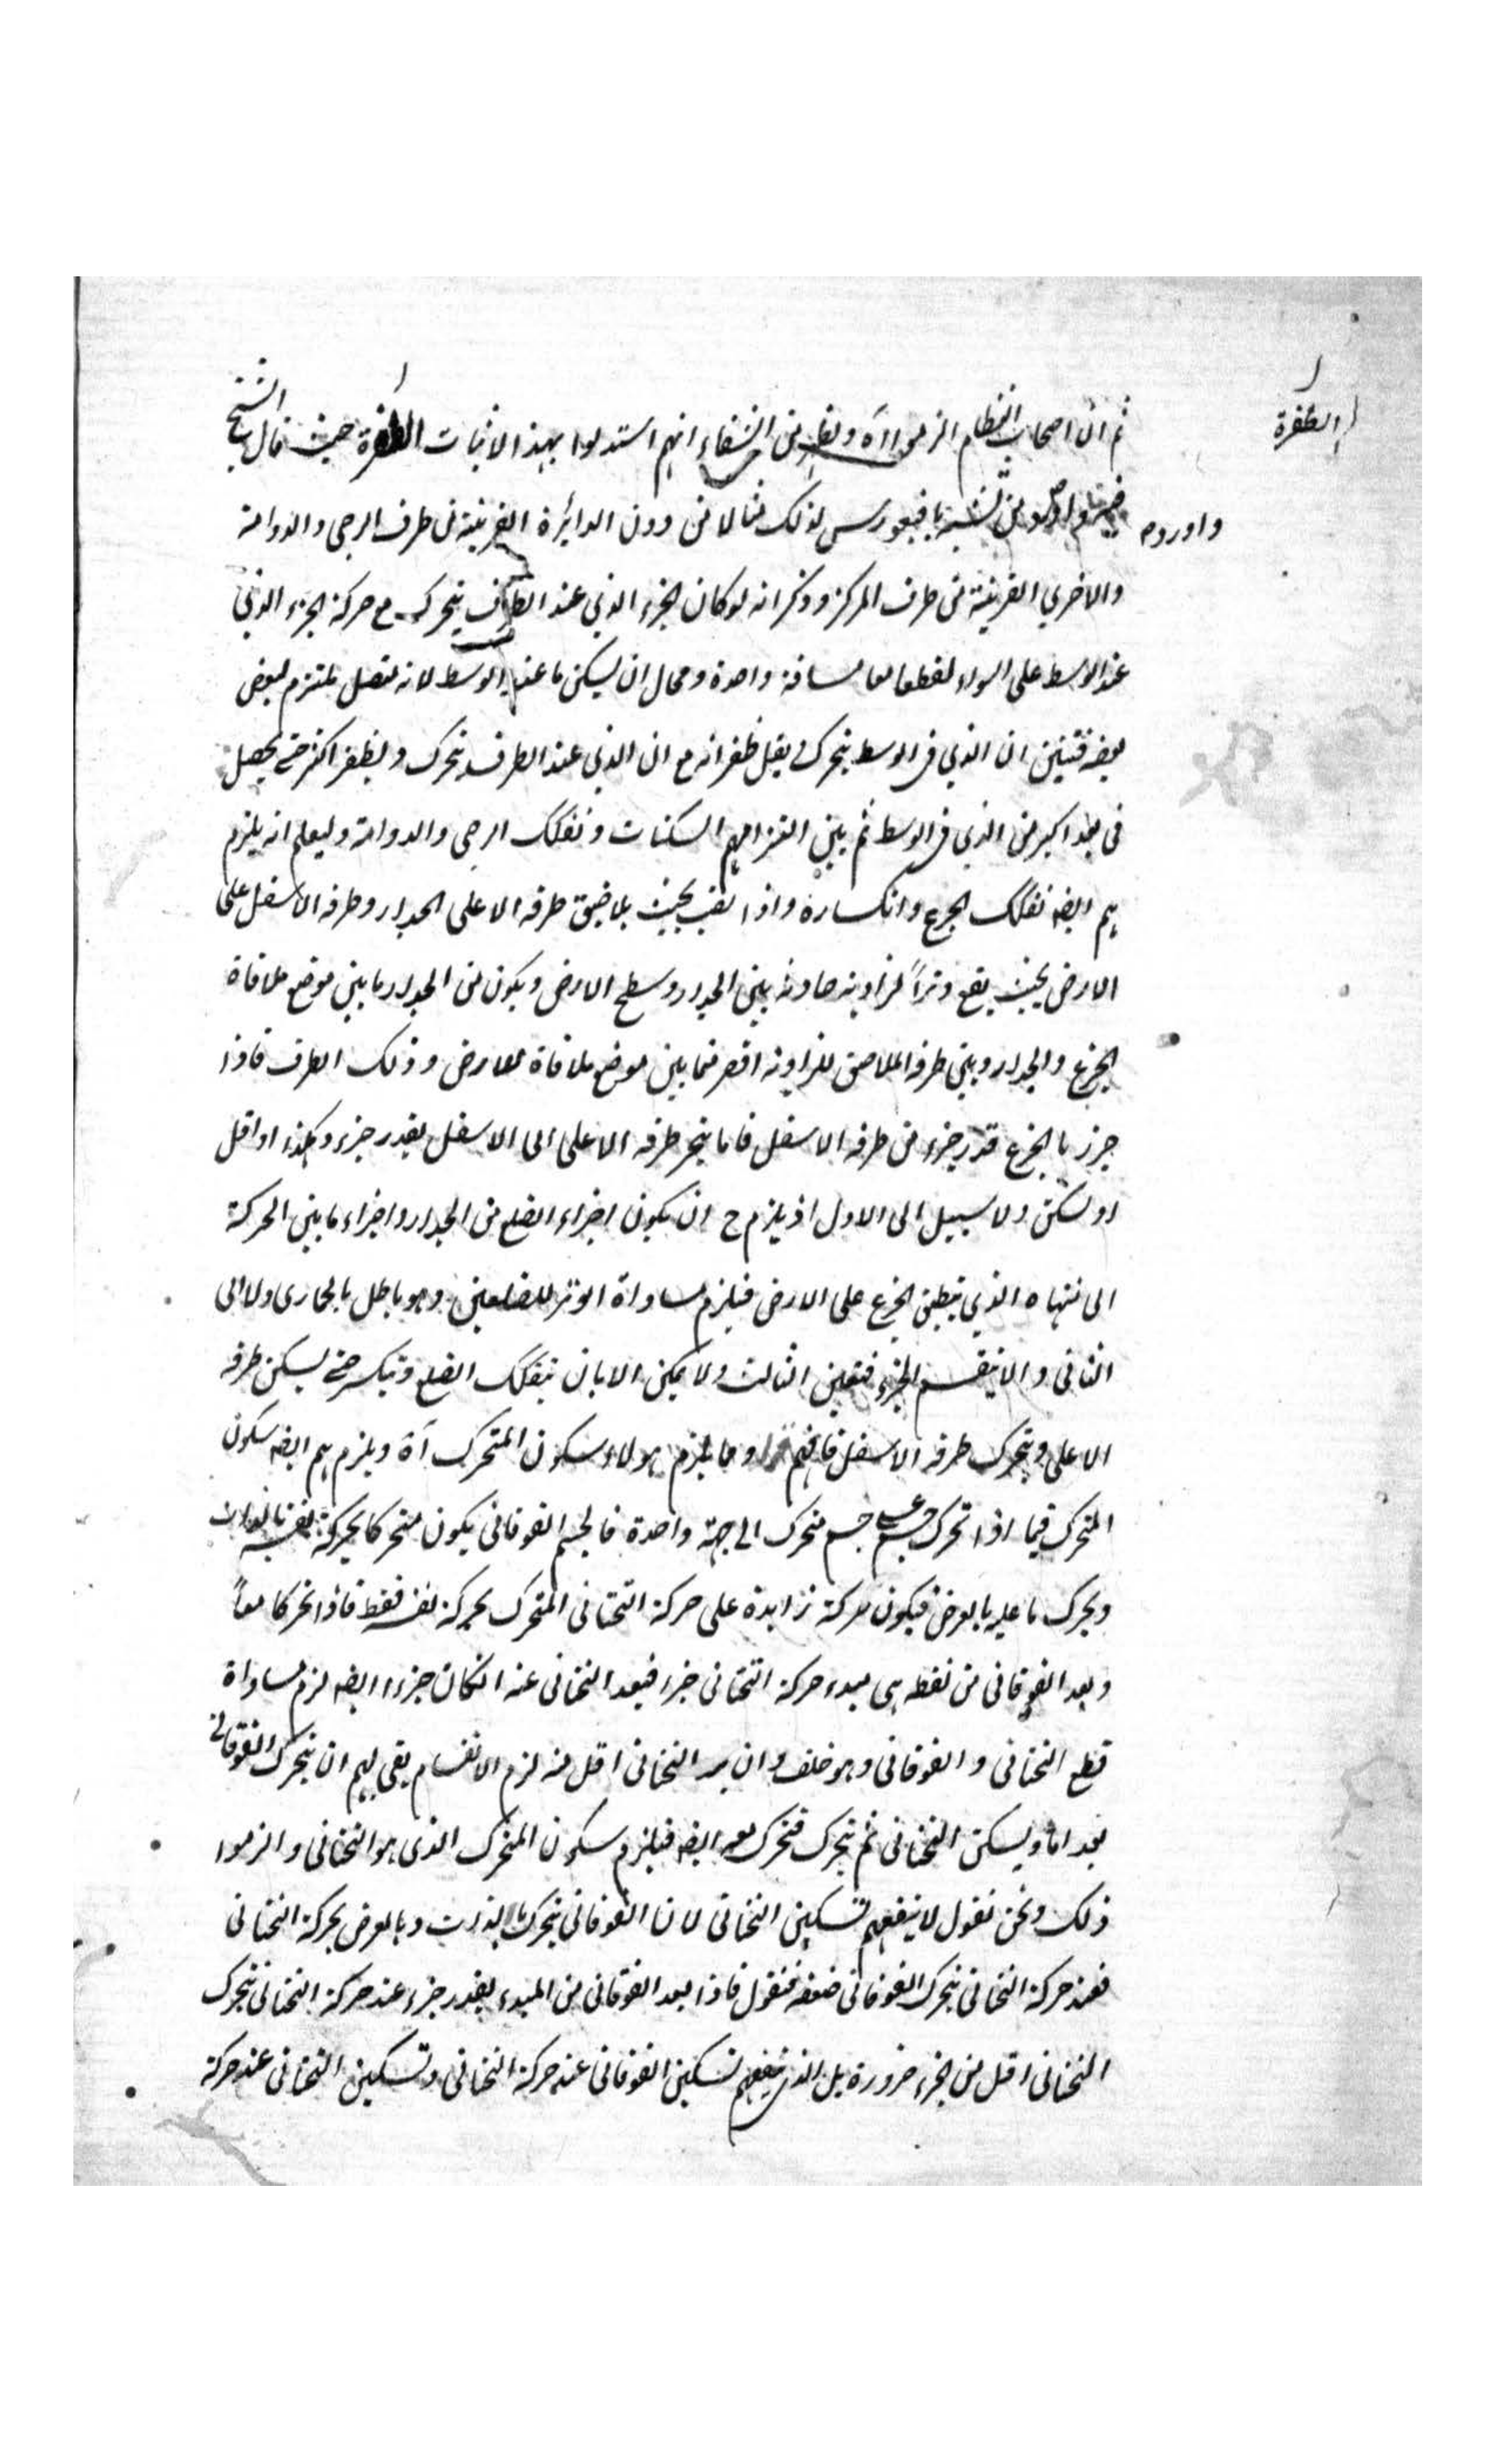 ثم ان اصحاب النظام الزموا اه ويظهر من الشفاء انهم استدلوا بهذا لاثبات الطفرة حيث قال الشيخ
الطفرة
واوردوه
بافيقورس لذلك مثالا من دون الدائرة القريبة من طرف الرحى والدوامة
والاخرى القريبة من طرف المركز وذكر انه لو كان الجزء الذي عند الطرف يتحرك مع حركة الجزء الذي
عند الوسط على السواء لقطعا معا مسافة واحدة ومحال ان يسكن ما عند الوسط لانه متصل ملتزم بعض
بعضه فتبين ان الذي في الوسط يتحرك ويقل طفراته مع ان الذي عند الطرف يتحرك ويطفر اكثر حتى يحصل
في بعد اكبر من الذي في الوسط ثم بين التزامهم السكنات وتفكك الرحى والدوامة وليعلم انه يلزم
هم ايضه تفكك الجزع وانكساره واذا نصب بحيث يلاصق طرفه الاعلى الجدار وطرفه الاسفل على
الارض بحيث يقع وترا لزاوية حادثة بين الجدار وسطح الارض ويكون من الجدار ما بين موضع ملاقاة
الجزع والجدار وبين طرفه الملاصق للزاوية اقصر مما بين موضع ملاقاة للارض وذلك الطرف فاذا
جرر بالجزع قدر جزء من طرفه الاسفل فاما ينجر طرفه الاعلى الى الاسفل بقدر جزء وهكذا او اقل
او يسكن ولا سبيل الى الاول اذ يلزم ح ان يكون اجزاء الضلع من الجدار واجزاء ما بين الحركة
الى منتهاه الذي ينطبق الجزع على الارض فيلزم مساواة الوتر للضلعين وهو باطل بالحمارى ولا الى
الثانى والا ينقسم الجزء فتعين الثالث ولا يمكن الا بان يتفكك الضلع وتيكسر حتى يسكن طرفه
الاعلى ويتحرك طرفه الاسفل فافهم وما يلزم هولاء سكون المتحرك اه ويلزم هم ايضه سكون
المتحرك فيما اذا تحرك جسم على جسم متحرك الى جهة واحدة فالجسم الفوقانى يكون متحركا بحركة نفسه بالذات
وبحركة ما عليه بالعرض فيكون حركته زايدة على حركة التحتانى المتحرك بحركة نفسه فقط فاذا تحركا معاً
وبعد الفوقانى من نقطه هى مبدء حركة التحتانى جزء فبعد التحتانى عنه انكان جزءا ايضه لزم مساواة
قطع التحتانى والفوقانى وهو خلف وان بعد التحتانى اقل منه لزم الانقسام بقى لهم ان يتحرك الفوقانى
بعد اما ويسكن التحتانى ثم يتحرك فتحرك معه ايضه فيلزم سكون المتحرك الذى هو التحتانى والزموا
ذلك ونحن نقول لا ينفعهم تسكين التحتانى لان الفوقانى يتحرك بالذات وبالعرض بحركة التحتانى
فعند حركة التحتانى يتحرك الفوقانى ضعفه فنقول فاذا بعد الفوقانى من المبدء بقدر جزء عند حركة التحتانى يتحرك
التحتانى اقل من الجزء ضرورة بل الذى ينفعهم تسكين الفوقانى عند حركة التحتانى وتسكين التحتانى عند حركة